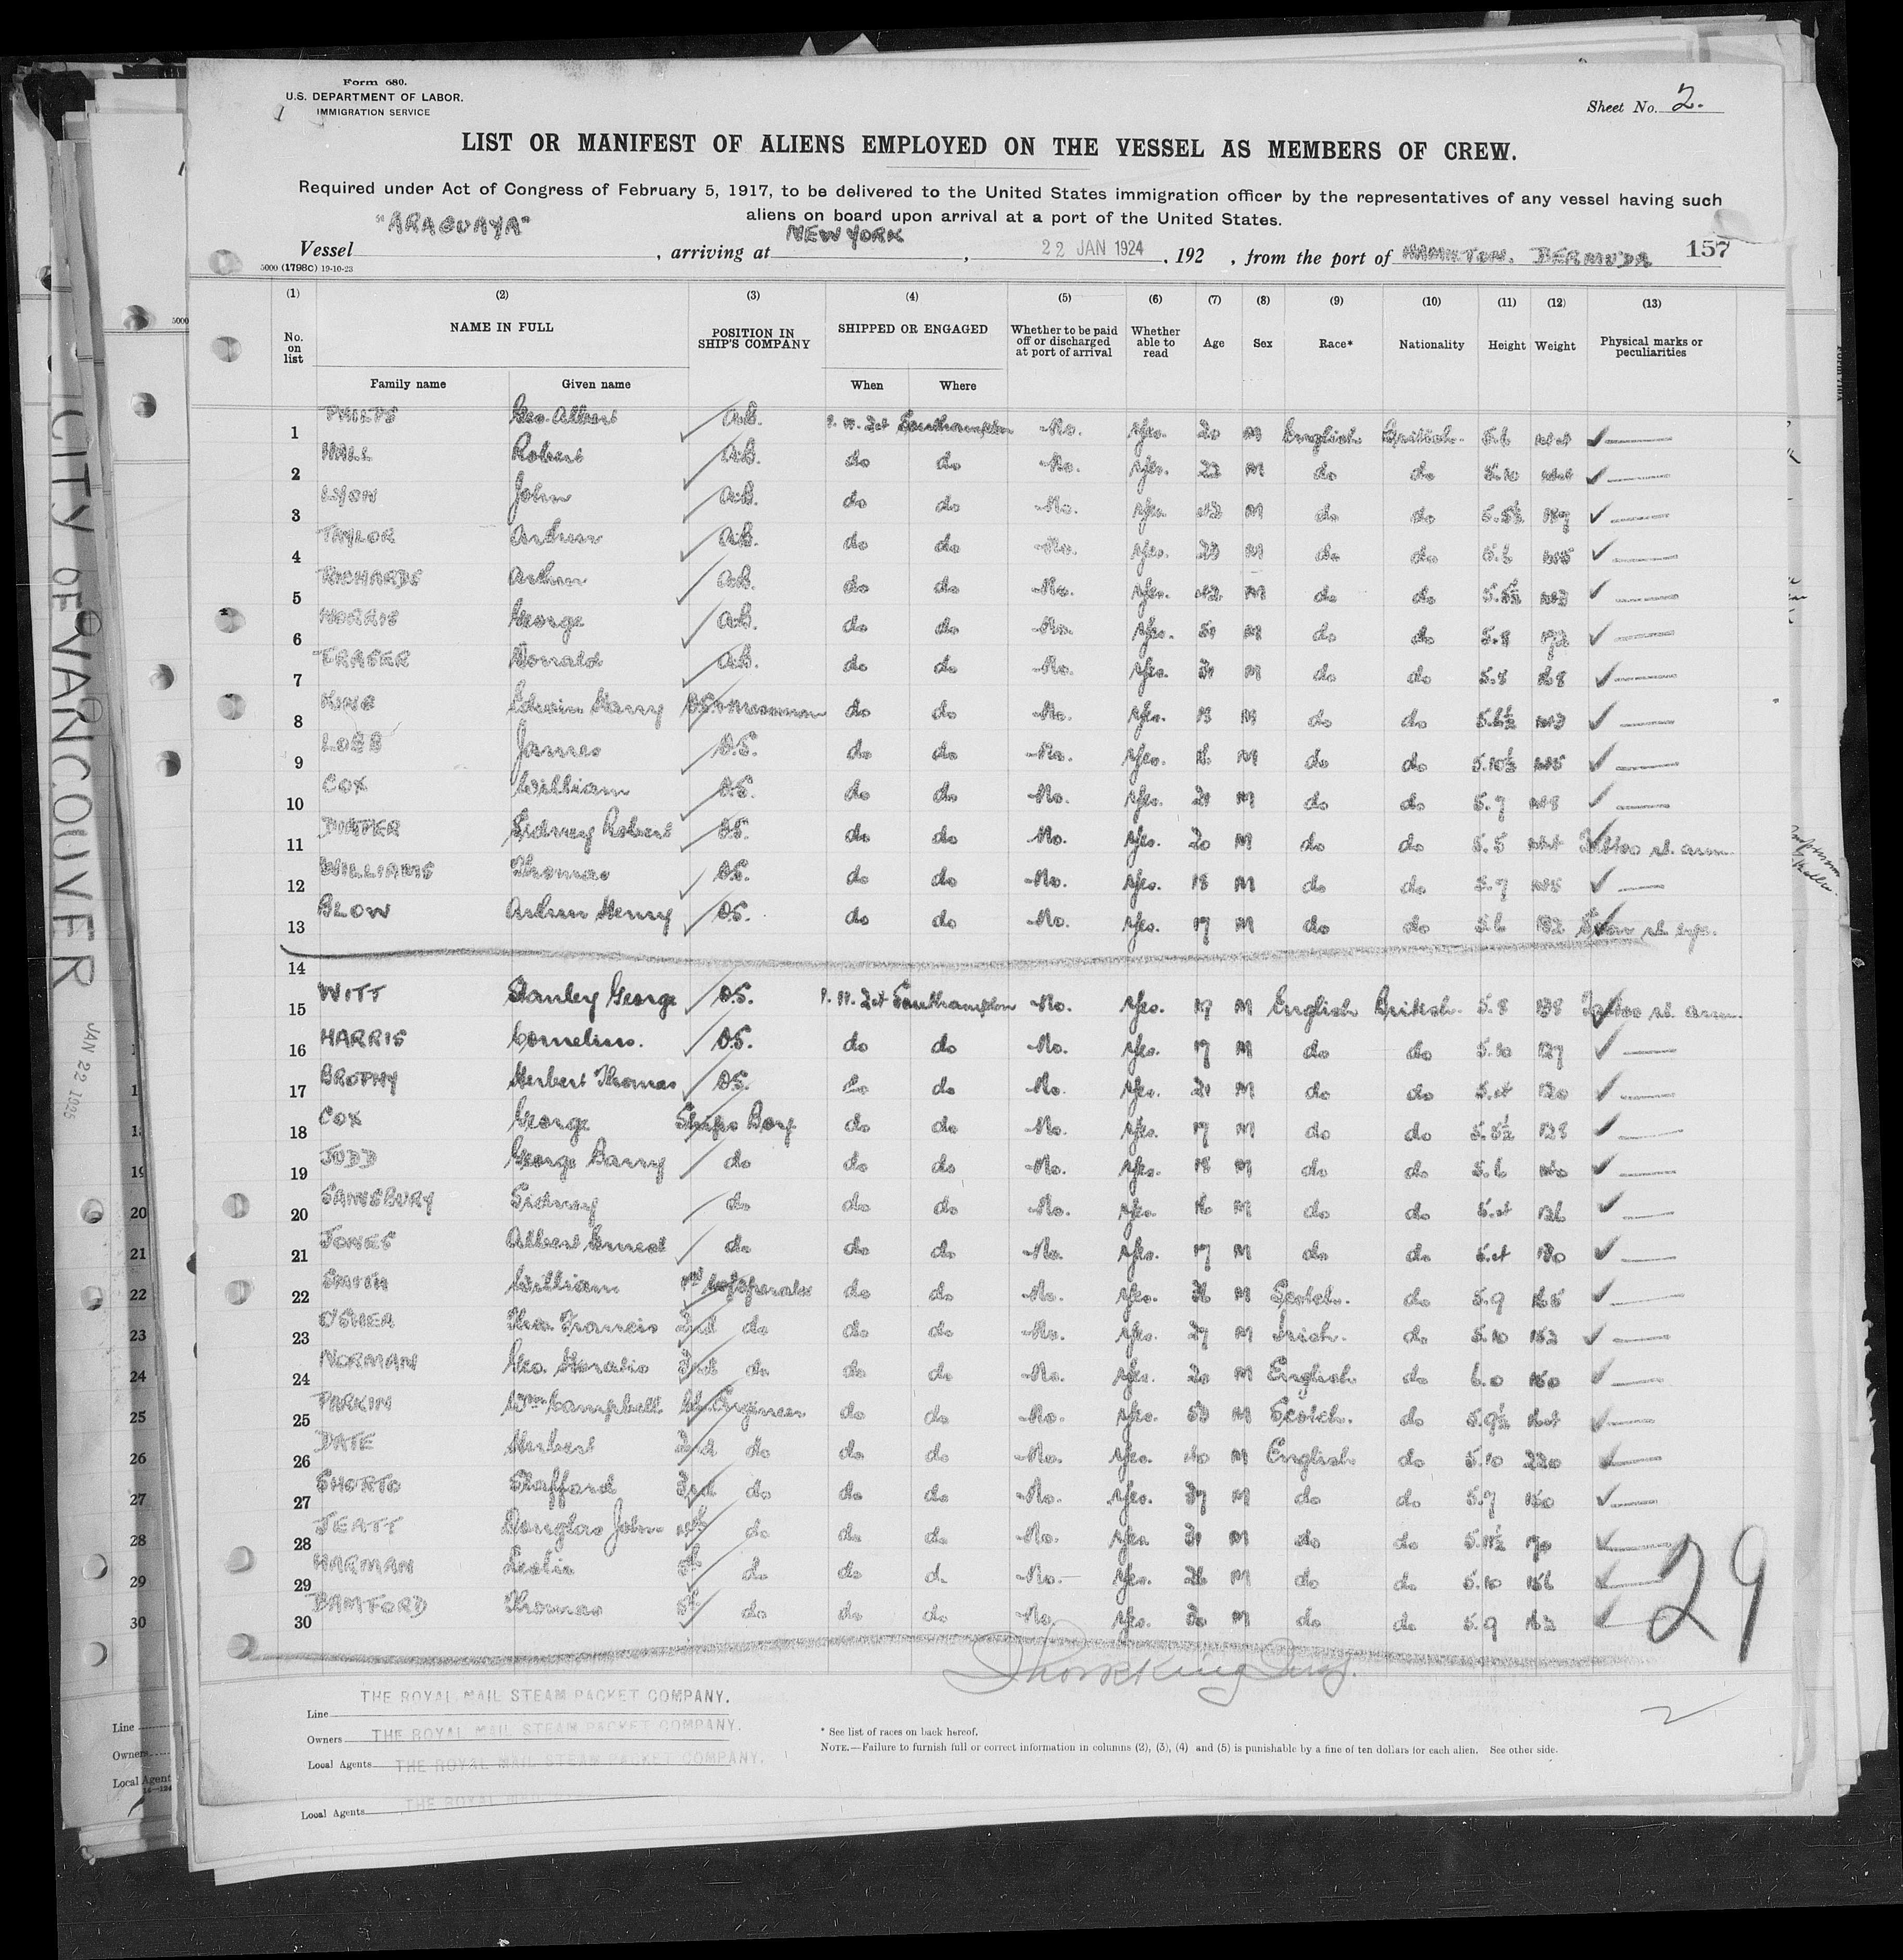 Form 680.
U.S. DEPARTMENT OF LABOR.
IMMIGRATION SERVICE
Sheet No. 2.
LIST OR MANIFEST OF ALIENS EMPLOYED ON THE VESSEL AS MEMBERS OF CREW.
Required under Act of Congress of February 5, 1917, to be delivered to the United States immigration officer by the representatives of any vessel having such
aliens on board upon arrival at a port of the United States.
Vessel "ARAGUAYA", arriving at NEW YORK, 22 JAN 1924, 192 , from the port of HAMILTON. BERMUDA 157
5000 (1798C) 19-10-23
(1) (2) (3) (4) (5) (6) (7) (8) (9) (10) (11) (12) (13)
No. on list NAME IN FULL POSITION IN SHIP'S COMPANY SHIPPED OR ENGAGED Whether to be paid off or discharged at port of arrival Whether able to read Age Sex Race* Nationality Height Weight Physical marks or peculiarities
Family name Given name When Where
1 Geo. Albert A.B. Southampton No. Yes. 20 M English British. 5.6
2 HALL Robert A.B. do do No. Yes. 22 M do do 5.10
3 LYON John A.B. do do No. Yes. 42 M do do 5.5½
4 TAYLOR Arthur A.B. do do No. Yes. 23 M do do 5.6
5 RICHARDS Arthur A.B. do do No. Yes. 42 M do do 5.5½
6 George A.B. do do No. Yes. 51 M do do 5.8 172
7 FRASER Donald A.B. do do No. Yes. M do do 5.8 168
8 KING Edwin Harry do do No. Yes. 18 M do do 5.6½
9 LOBB James O.S. do do No. Yes. 16 M do do 5.10½
10 COX William O.S. do do No. Yes. 21 M do do 5.7
11 Sidney Robert O.S. do do No. Yes. 20 M do do 5.5 Tattoo rt. arm
12 WILLIAMS Thomas O.S. do do No. Yes. 18 M do do 5.7
13 BLOW Arthur Henry O.S. do do No. Yes. 17 M do do 5.6 132 Scar rt.
14
15 WITT Stanley George O.S. Southampton No. Yes. 19 M English British. 5.8 138 Tattoo rt. arm.
16 HARRIS Cornelius. O.S. do do No. Yes. 17 M do do 5.10 127
17 BROPHY Herbert Thomas O.S. do do No. Yes. 21 M do do 5.4 120
18 COX George Ships Boy do do No. Yes. 17 M do do 5.5½ 128
19 JUDD George Barry do do do No. Yes. 18 M do do 5.6 140
20 SAINSBURY Sidney do do do No. Yes. 16 M do do 5.4 126
21 JONES Albert Ernest do do do No. Yes. 17 M do do 5.4 130
22 SMITH William do do No. Yes. 36 M Scotch. do 5.9 165
23 O'SHEA Thos. Francis 2nd do do do No. Yes. 27 M Irish. do 5.10 152
24 NORMAN Geo. Horatio 3rd do do do No. Yes. 20 M English do 6.0 160
25 PARKIN Wm Campbell Ch. Engineer do do No. Yes. 53 M Scotch. do 5.9½ 164
26 DATE Herbert 2nd do do do No. Yes. 40 M English do 5.10 220
27 SHORTO Stafford 3rd do do do No. Yes. 37 M do do 5.7 150
28 JEATT Douglas John 4th do do do No. Yes. 31 M do do 5.11½ 170
29 HARMAN Leslie 5th do do do No. Yes. 26 M do do 5.10 156
30 BAMFORD Thomas do do do No. Yes. 30 M do do 5.9 162
29
Line THE ROYAL MAIL STEAM PACKET COMPANY.
Owners THE ROYAL MAIL STEAM PACKET COMPANY.
Local Agents THE ROYAL MAIL STEAM PACKET COMPANY.
* See list of races on back hereof.
NOTE.—Failure to furnish full or correct information in columns (2), (3), (4) and (5) is punishable by a fine of ten dollars for each alien. See other side.
Local Agents
CITY OF VANCOUVER
JAN 22 1925
5000
19
20
21
22
23
24
25
26
27
28
29
30
Line
Owners
Local Agent